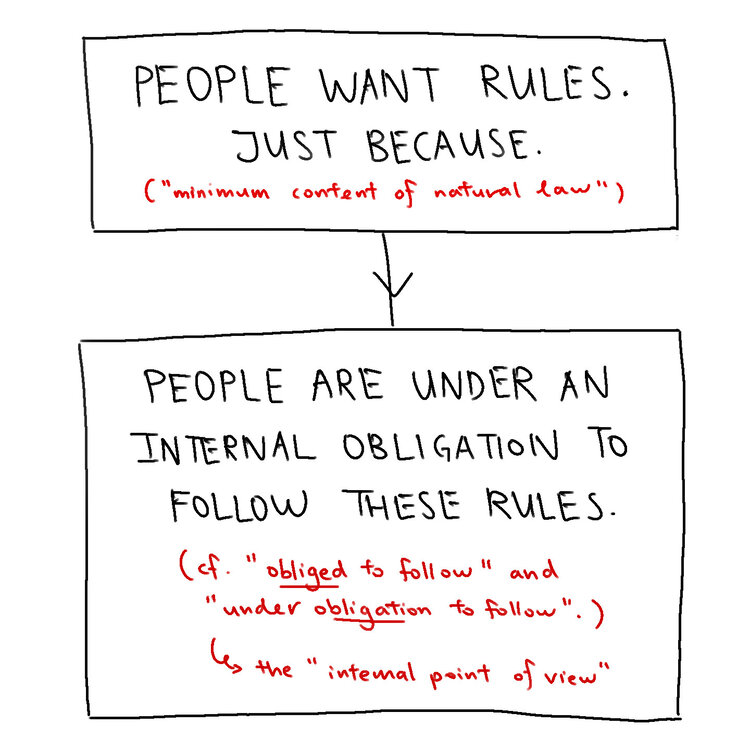 PEOPLE WANT RULES.
JUST BECAUSE.
("minimum content of natural law")
PEOPLE ARE UNDER AN
INTERNAL OBLIGATION TO
FOLLOW THESE RULES.
(cf. "obliged to follow" and
"under obligation to follow".)
↳ the "internal point of view"